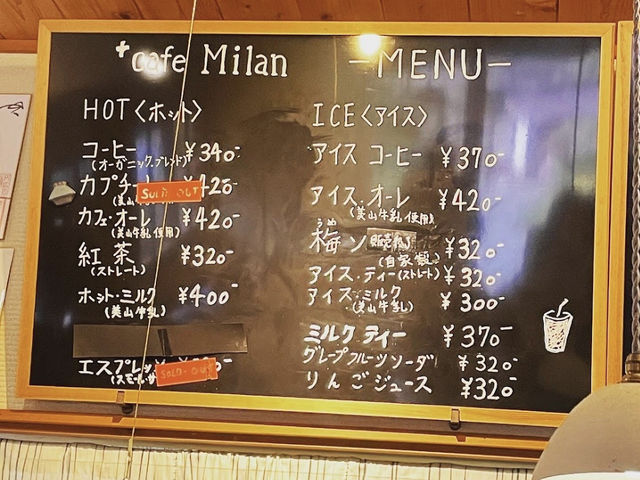 +cafe Milan
-MENU-
HOT〈ホット〉
コーヒー ¥340-
(オーガニックブレンド)
カプチ
SOLD OUT
420-
カフェ・オーレ ¥420-
(美山牛乳使用)
紅茶 ¥320-
(ストレート)
ホット・ミルク ¥400-
(美山牛乳)
エスプレッ
SOLD-OUT
ICE〈アイス〉
アイス コーヒー ¥370-
アイス・オーレ ¥420-
(美山牛乳使用)
うめ
梅ソ ¥320-
(自家製)
アイス・ティー(ストレート) ¥320-
アイス・ミルク ¥300-
(美山牛乳)
ミルク ティー ¥370-
グレープフルーツソーダ ¥320-
りんごジュース ¥320-